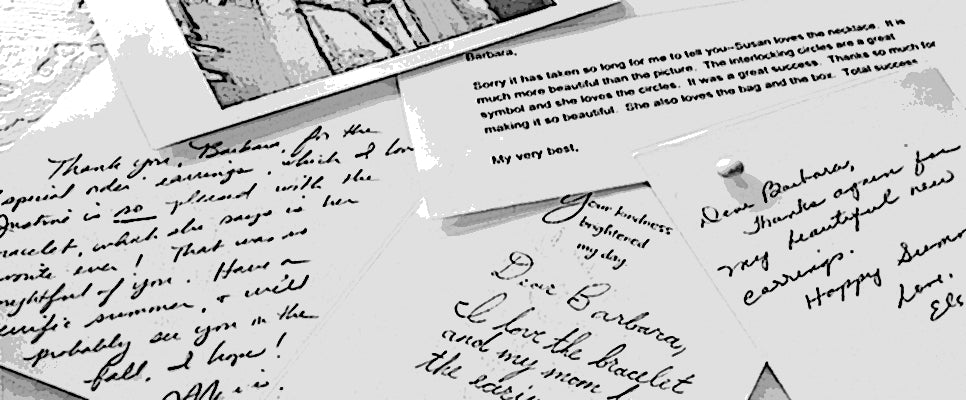 Barbara,
Sorry it has taken so long for me to tell you--Susan loves the necklace. It is
much more beautiful than the picture. The interlocking circles are a great
symbol and she loves the circles. It was a great success. Thanks so much for
making it so beautiful. She also loves the bag and the box. Total success
My very best,
Thank you, Barbara, for the
special order earrings, which I lov
is so pleased with the
racelet, which she says is her
vorite ever! That was so
ghtful of you. Have a
errific summer, & will
probably see you in the
fall, I hope!
Your kindness
brightened
my day
Dear Barbara,
I love the bracelet
and my mom l
the earin
Dear Barbara,
Thanks again for
my beautiful new
earrings.
Happy Summ
Love,
Els